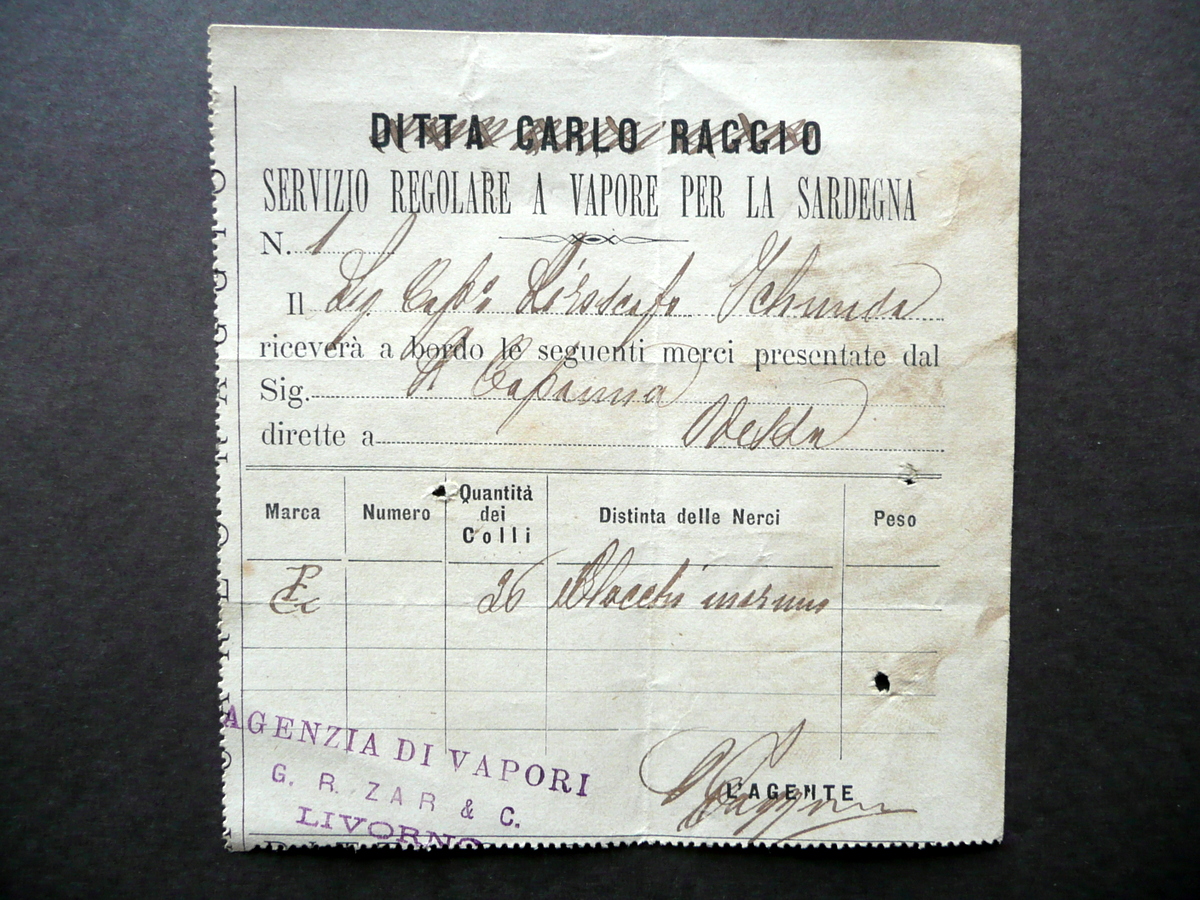 DITTA CARLO RAGGIO
SERVIZIO REGOLARE A VAPORE PER LA SARDEGNA
N. 1
Il Sig. Cap.o Piroscafo
riceverà a bordo le seguenti merci presentate dal
Sig.
dirette a Odessa
Marca Numero Quantità dei Colli Distinta delle Nerci Peso
26 Blocchi marmo
L'AGENTE
AGENZIA DI VAPORI
G. R. ZAR & C.
LIVORNO